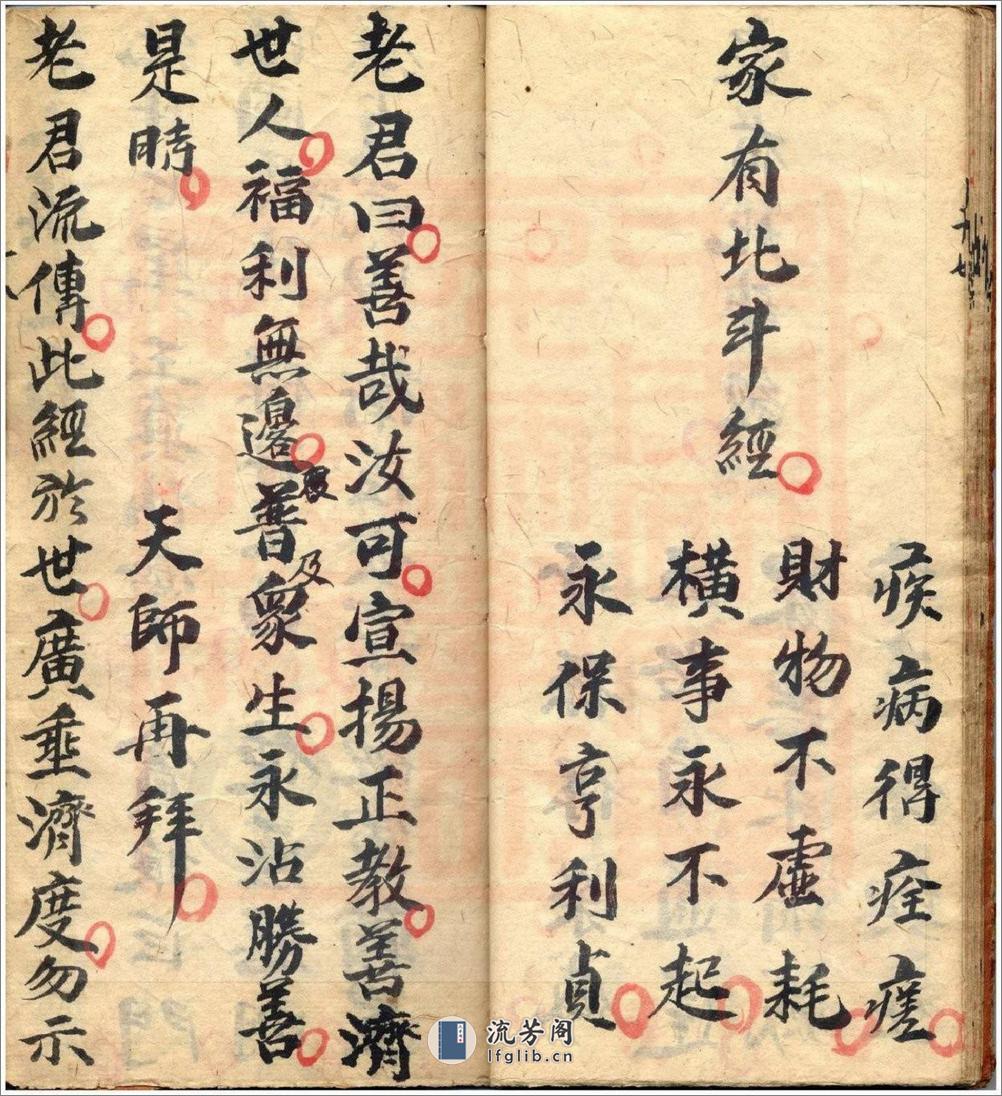 家有北斗經
疾病得痊瘥
財物不虛耗
橫事永不起
永保亨利貞
老君曰善哉汝可宣揚正教善濟
世人福利無邊普及眾生永沾勝善
是時 天師再拜
老君流傳此經於世廣垂濟度勿示
流芳阁
lfglib.cn